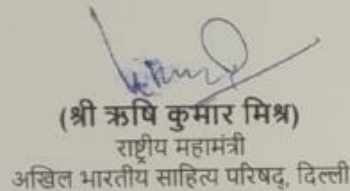 (श्री ऋषि कुमार मिश्र)
राष्ट्रीय महामंत्री
अखिल भारतीय साहित्य परिषद्, दिल्ली